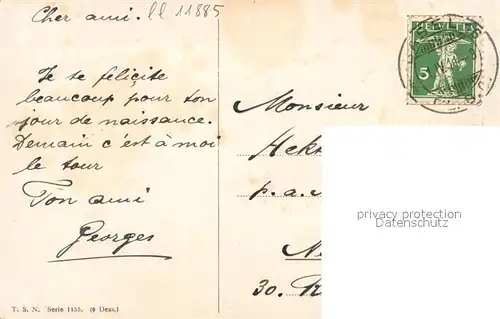 Cher ami. ll 11885
Je te félicite
beaucoup pour ton
jour de naissance.
Demain c'est à moi
le tour
Ton ami
Georges
T. S. N. Serie 1155. (6 Dess.)
HELVETIA
5
Monsieur
p.a.
30.
privacy protection
Datenschutz